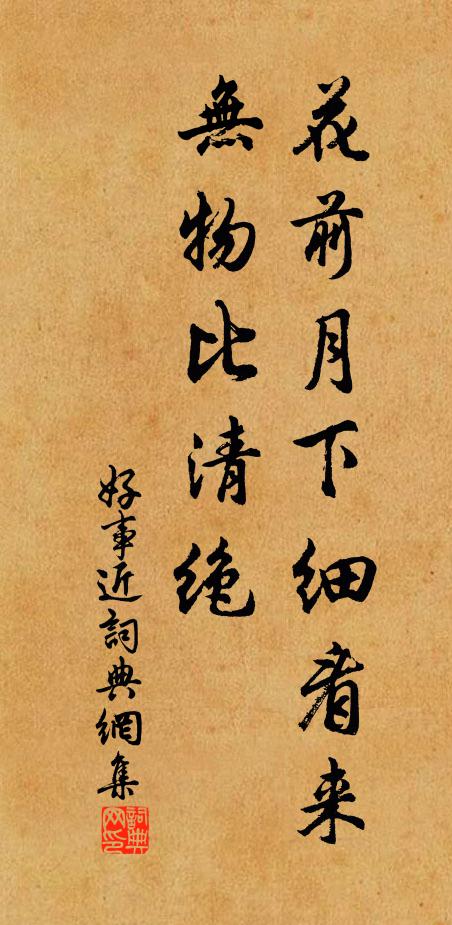 花前月下细看来
無物比清绝
好事近詞典網集
詞典网印